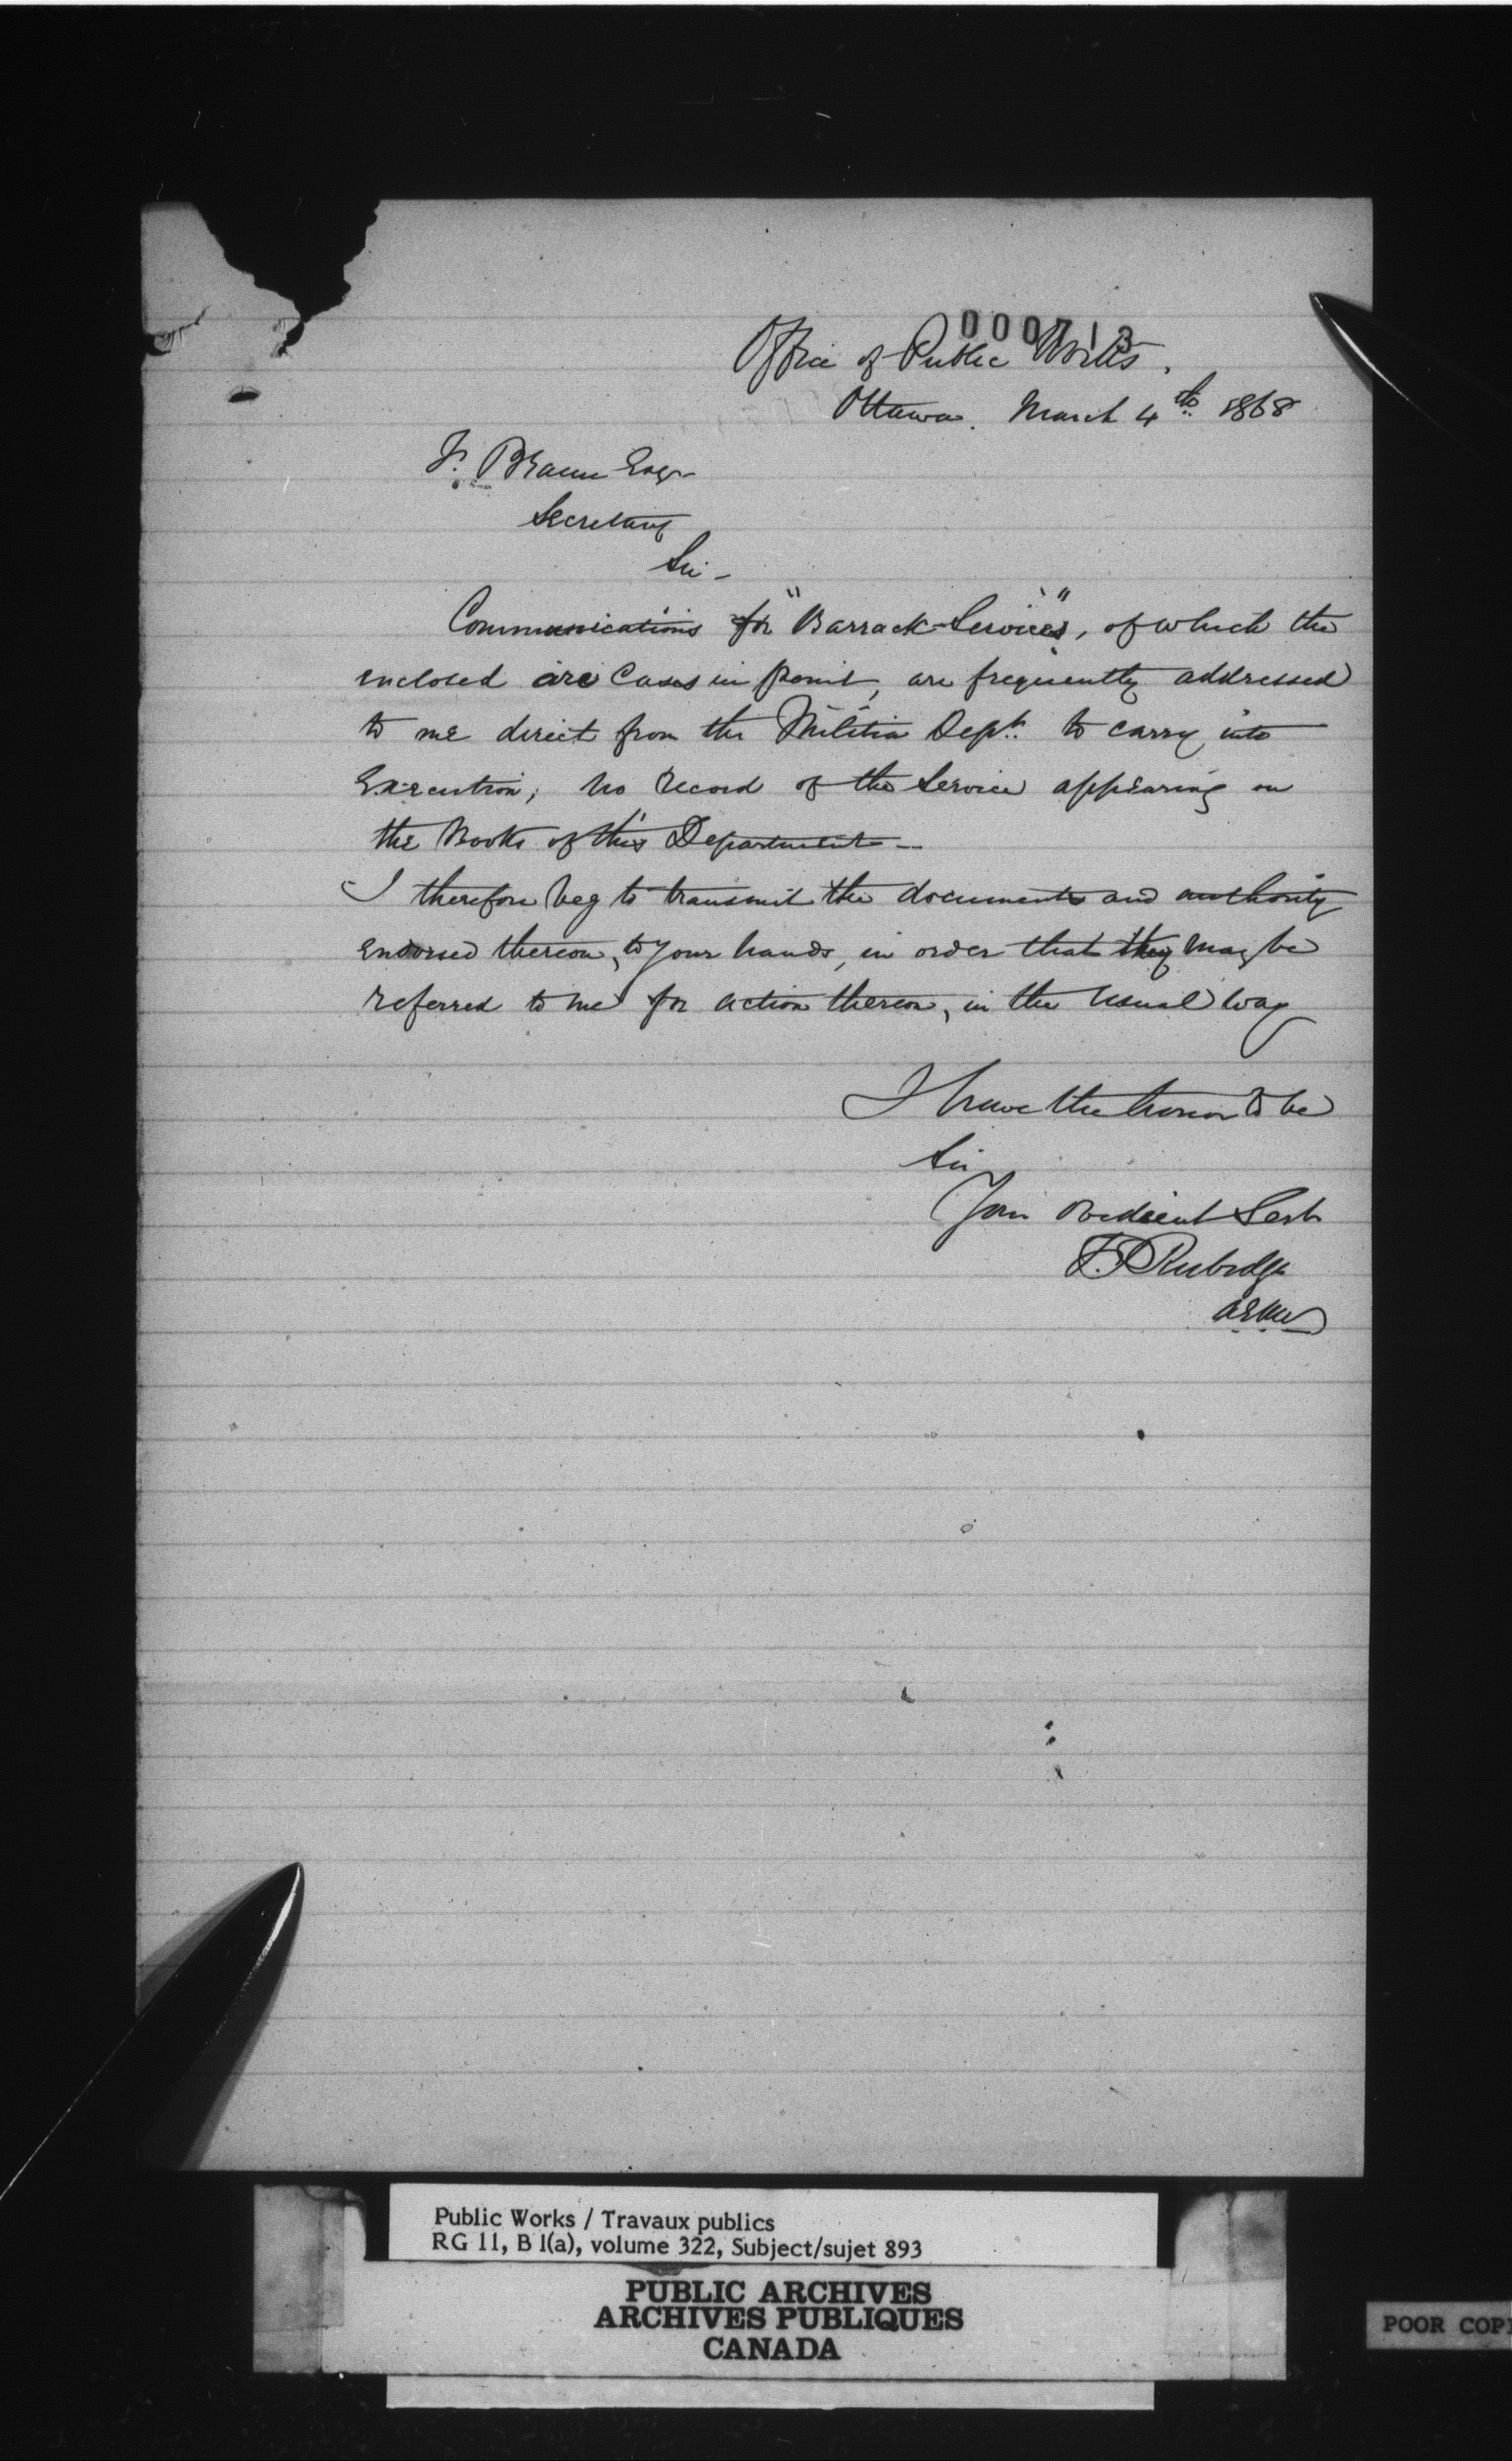 000713
Office of Public Works.
Ottawa. March 4th 1868
F. Braun Esqr
Secretary
Sir -
Communications for "Barrack-Services", of which the
enclosed are Cases in point, are frequently addressed
to me direct from the Militia Dept. to carry into
Execution; no record of the Service appearing on
the Books of this Department -
I therefore beg to transmit the documents and authority
endorsed thereon, to your hands, in order that they may be
referred to me for action thereon, in the usual way
I have the honor to be
Sir
Your obedient Servt
F. P. Rubidge
Public Works / Travaux publics
RG 11, B 1(a), volume 322, Subject/sujet 893
PUBLIC ARCHIVES
ARCHIVES PUBLIQUES
CANADA
POOR COP